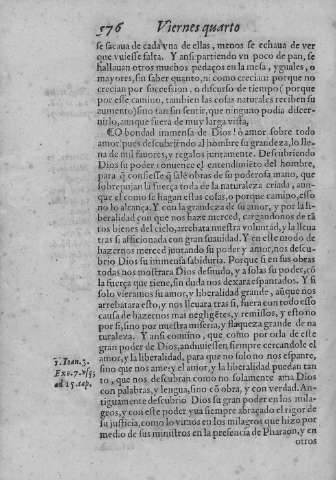 576 Viernes quarto
se sacaua de cada vna de ellas, menos se echaua de ver
que vuiesse falta. Y ansi partiendo vn poco de pan, se
hallauan otros muchos pedaços en la mesa, yguales, o
mayores, sin saber quanto, ni como crecian: porque no
crecian por succession, o discurso de tiempo (porque
por esse camino, tambien las cosas naturales reciben su
aumento) sino tan sin sentir, que ninguno podia discer-
nirlo, aunque fuera de muy larga vista.
O bondad immensa de Dios! ô amor sobre todo
amor! pues descubriendo al hombre su grandeza, lo lle-
na de mil fauores, y regalos juntamente. Descubriendo
Dios su poder conuence el entendimiẽto del hombre,
para q̃ confiesse q̃ salẽ obras de su poderosa mano, que
sobrepujan la fuerça toda de la naturaleza criada, aun-
que el como se hagan estas cosas, o porque camino, esso
no lo alcança. Y con la grandeza de su amor, y por la li-
beralidad con que nos haze merced, cargandonos de tã
tos bienes del cielo, arrebata nuestra voluntad, y la lleua
tras si aficionada con gran suauidad. Y en este modo de
hazernos merced juntando su poder y amor, nos descu-
brio Dios su immensa sabiduria. Porque si en sus obras
todas nos mostrara Dios desnudo, y a solas su poder, cõ
la fuerça que tiene, sin duda nos dexara espantados. Y si
solo vieramos su amor, y liberalidad grande, aũque nos
arrebatara esto, y nos lleuara tras si, fuera con todo esso
causa de hazernos mas negligẽtes, y remissos, y esto no
por si, sino por nuestra miseria, y flaqueza grande de na
turaleza. Y ansi conuino, que como por orla de este
gran poder de Dios, anduuiessen siempre cercandole el
amor, y la liberalidad, para que no solo no nos espante,
sino que nos ame y el amor, y la liberalidad puedan tan
to, que nos descubran como no solamente ama Dios
con palabras, y lengua, sino cõ obra, y con verdad. An-
tiguamente descubrio Dios su gran poder en los mila-
gros, y con este poder yua siempre abraçado el rigor de
su justicia, como lo vimos en los milagros que hizo por
medio de sus ministros en la presencia de Pharaon, y en
otros
1. Ioan. 3.
Exo. 7. vsq;
ad 15. cap.